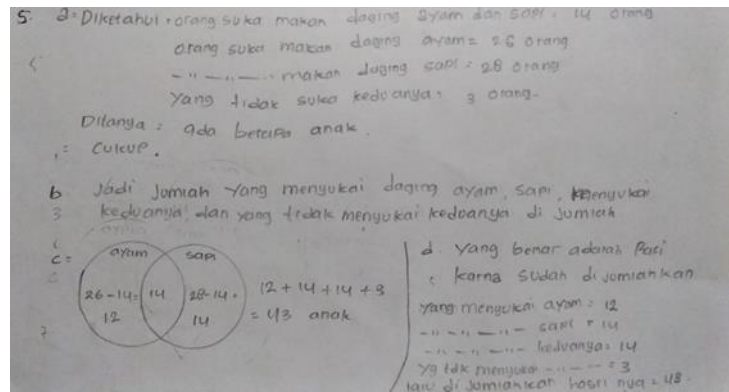 5. a = Diketahui : orang suka makan daging ayam dan sapi = 14 orang
orang suka makan daging ayam = 26 orang
- " - " - " - makan daging sapi = 28 orang
yang tidak suka keduanya = 3 orang.
Ditanya = ada berapa anak.
= Cukup.
b Jadi jumlah yang menyukai daging ayam, sapi, menyukai
keduanya dan yang tidak menyukai keduanya di jumlah
c =
ayam sapi
26-14= 14 28-14 =
12 14
12 + 14 + 14 + 3
= 43 anak
d. yang benar adalah
karna sudah di jumlahkan
yang menyukai ayam = 12
- " - " - " - sapi = 14
- " - " - " - keduanya = 14
yg tdk menyukai - " - " - = 3
lalu di jumlahkan hasil nya = 43.